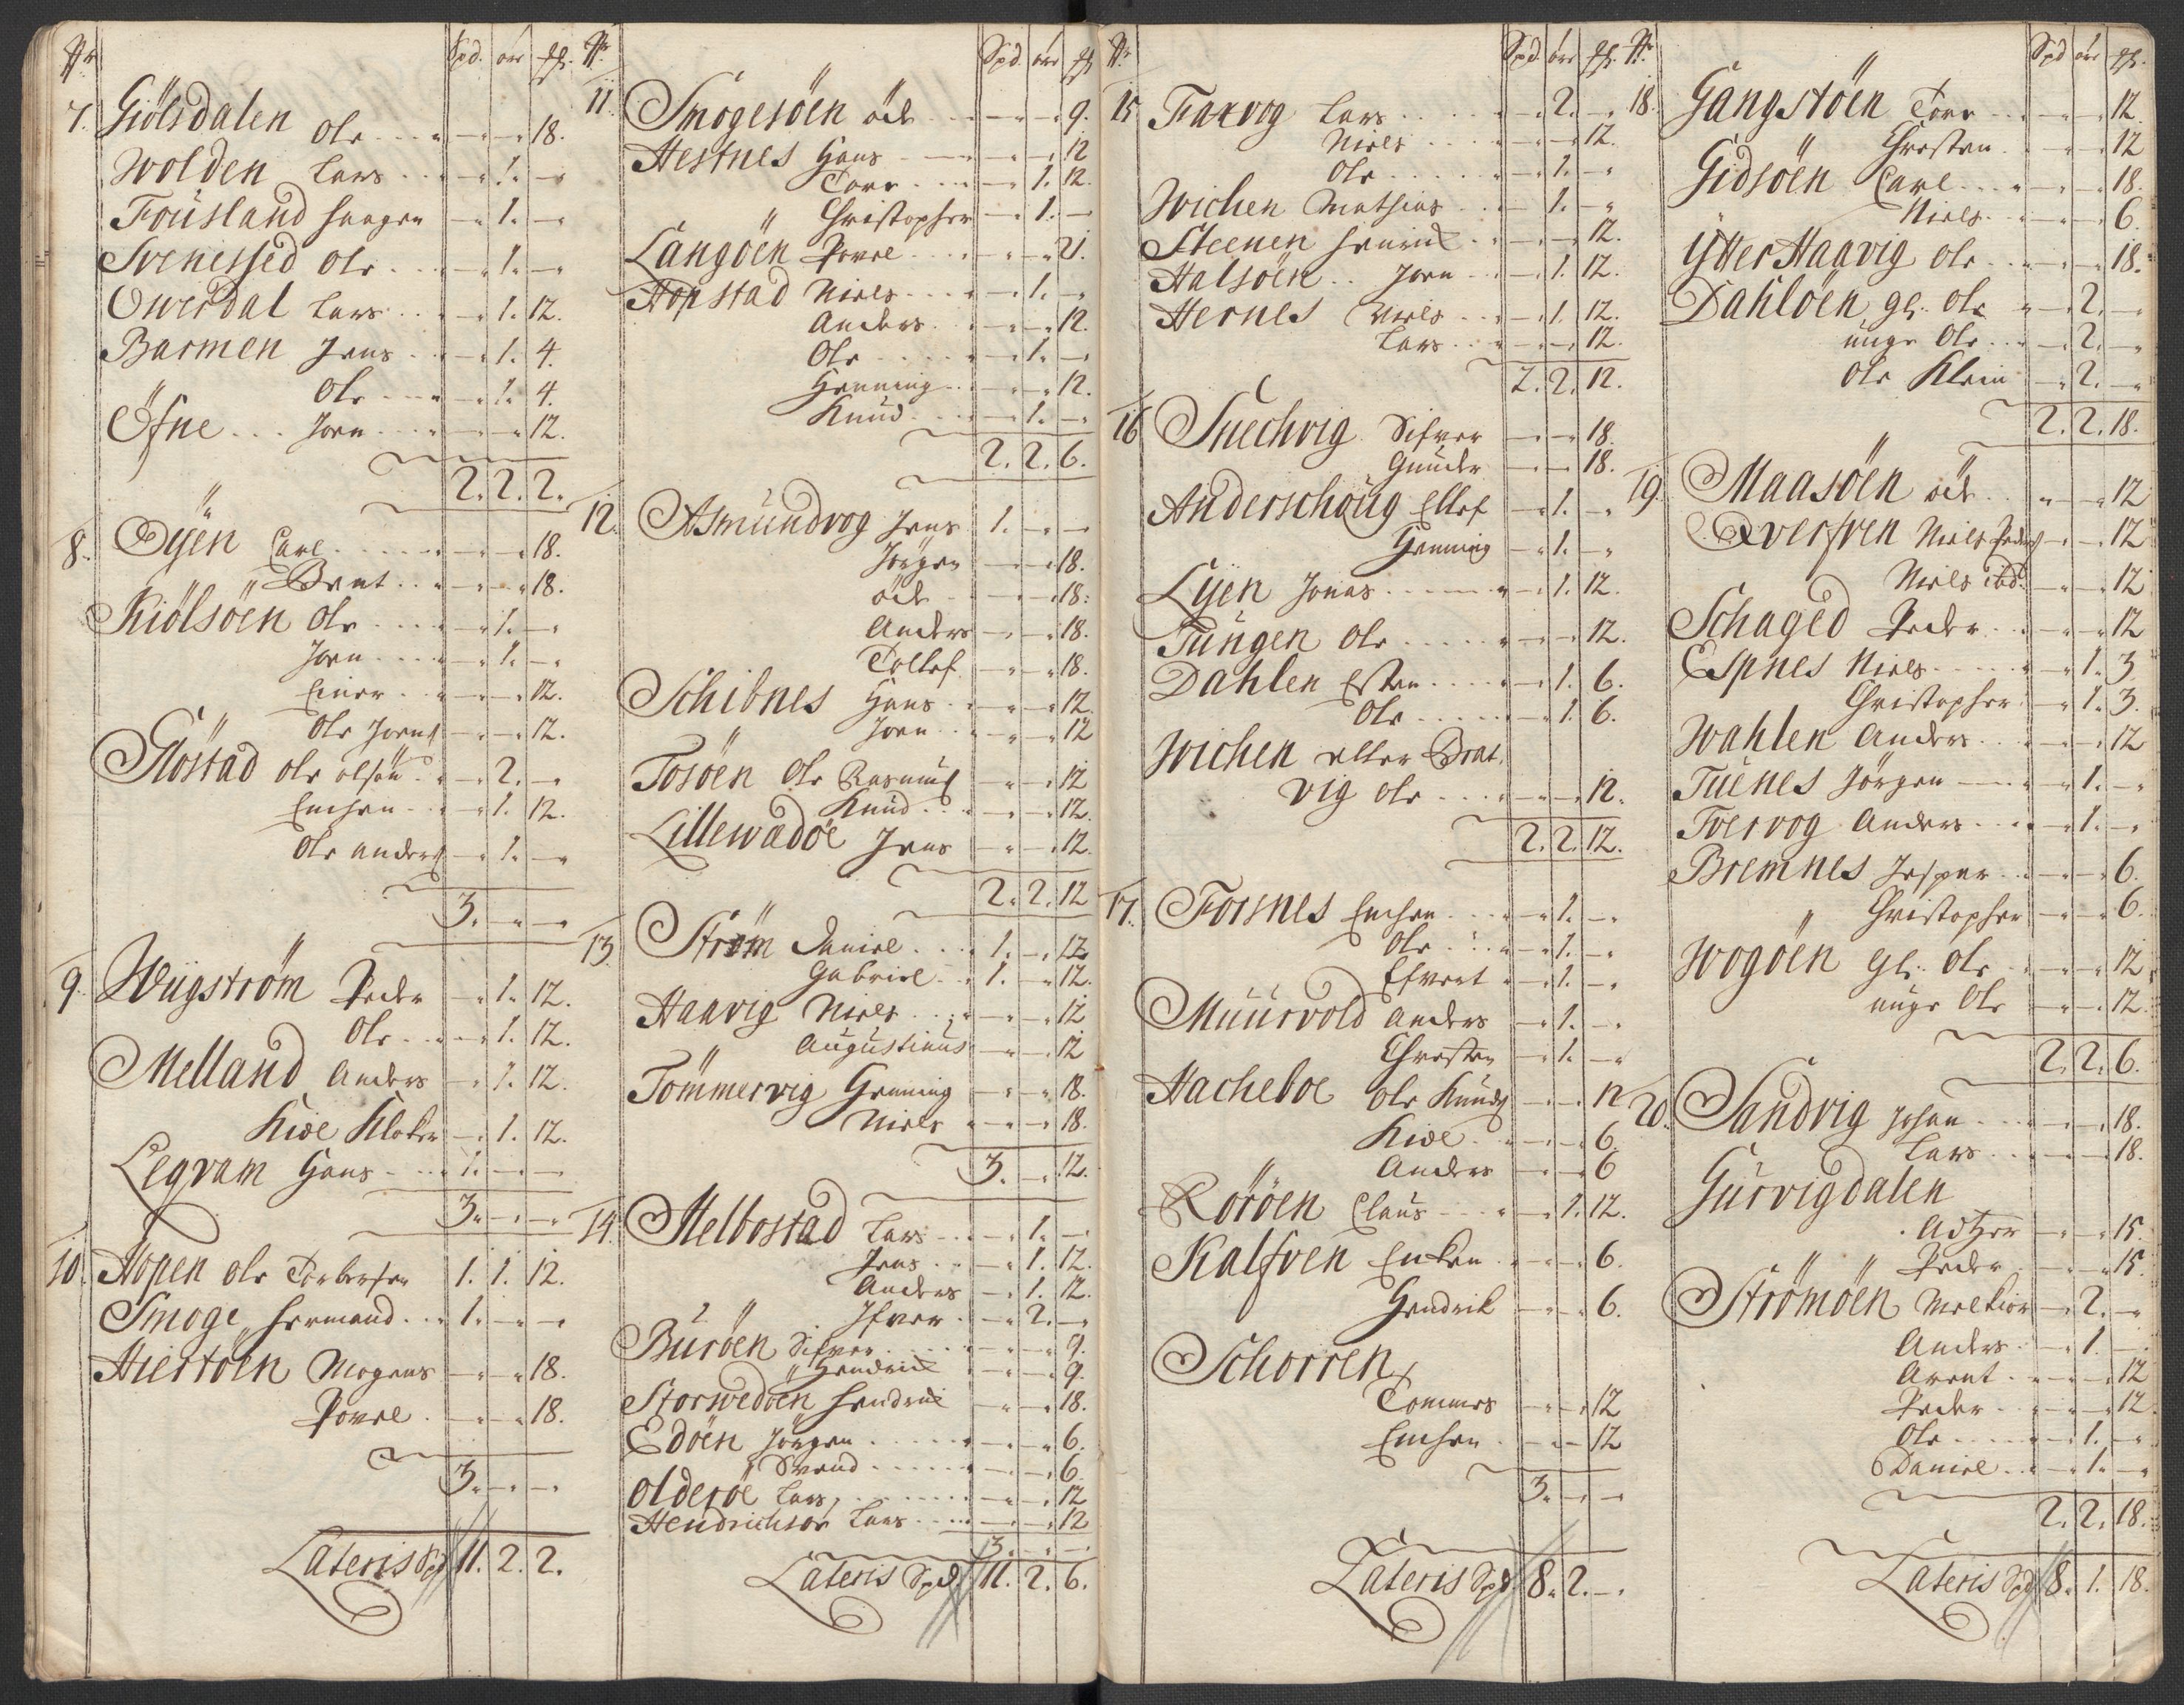 Nr Spd. ore ℔.
7. Giölsdalen Ole - - 18.
Wolden Lars - 1. -
Fousland Haagen - 1. -
Svenessed Ole - 1. -
Owerdal Lars - 1. 12.
Barmen Jens - 1. 4.
Ole - 1. 4.
Öfne Joen - - 12.
2. 2. 2.
8. Öyen Carl - - 18.
Brent - - 18.
Kiölsöen Ole - 1. -
Joen - 1. -
Einer - - 12.
Ole Joens - - 12.
Glöstad Ole Olsön - 2. -
Enchen - 1. 12.
Ole Anders - 1. -
3. - -
9. Wügström Peder - 1. 12.
Ole - 1. 12.
Melland Anders - 1. 12.
Kiøl Kloker - 1. 12.
Legvam Hans 1. - -
3. - -
10. Hopen Ole Torbersen 1. 1. 12.
Smoge Hermand 1. - -
Hiertöen Mogens - - 18.
Povel - - 18.
3. - -
Lateris Spd 11. 2. 2.
Nr Spd. ore ℔
11 Smogesöen öde - - 9.
Hestnes Hans - - 12
Tore - 1. 12.
Christopher - 1. -
Langöen Povel - - 21.
Hopstad Niels - 1. -
Anders - - 12.
Ole - 1. -
Henning - - 12.
Knud - 1. -
2. 2. 6.
12. Asmundvog Jens 1. - -
Jörgen - - 18.
öde - - 18.
Anders - - 18.
Tollef - - 18.
Schibnes Hans - - 12.
Joen - - 12
Tosöen Ole Rasmus - - 12
Knud - - 12.
Lillewadöe Jens - - 12.
2. 2. 12
13. Ström Daniel 1. - 12
Gabriel 1. - 12.
Haavig Niels - - 12
Augustinus - - 12
Tömmervig Henning - - 18.
Niels - - 18.
3. - 12.
14. Melbostad Lars - 1. -
Jens - 1. 12.
Anders - 1. 12.
Ifver - 2. -
Buröen Sifver - - 9.
Hendrich - - 9.
Storwedöen Hendrich - - 18.
Edöen Jörgen - - 6.
Svend - - 6.
Olderöe Lars - - 12
Hendrichsör Lars - - 12
3. - -
Lateris Spd 11. 2. 6.
Nr Spd. ore ℔.
15 Farvog Lars - 2. -
Niels - - 12.
Ole - 1. -
Wichen Mathias - 1. -
Steenen Henrich - - 12.
Halsöen Joen - 1. 12.
Hernes Niels - 1. 12.
Lars - - 12.
2. 2. 12.
16 Snechvig Sifver - - 18.
Gunder - - 18.
Anderschoug Ellef - 1. -
Henning - 1. -
Lyen Jonas - 1. 12.
Tungen Ole - - 12.
Dahlen Esten - 1. 6.
Ole - 1. 6.
Wichen eller Brat
vig Ole - - 12.
2. 2. 12.
17. Forsnes Enchen - 1. -
Ole - 1. -
Efvert - 1. -
Muurvold Anders - 1. -
Christen - 1. -
Hacheboe Ole Knuds - - 12
Kiøl - - 6.
Anders - - 6
Roröen Claus - 1. 12.
Kalfven Encken - - 6.
Hendrik - - 6.
Schorren
Tommes - - 12
Enchen - - 12
3. - -
Lateris Spd. 8. 2. -
Nr Spd ore ℔.
18. Gangstöen Tore - - 12.
Christen - - 12
Gidsöen Carl - - 18.
Niels - - 6.
Ytter Haavig Ole - - 18.
Dahlöen gl. Ole - 2. -
unge Ole - 2. -
Ole Klein - 2. -
2. 2. 18.
19. Maasöen öde - - 12
Qverfven Niels Peders - - 12
Niels ibd. - - 12
Schaged Peder - - 12
Espnes Niels - 1. 3.
Christopher - 1. 3.
Wahlen Anders - - 12
Tuenes Jörgen - 1. -
Tvervog Anders - 1. -
Bremnes Jesper - - 6.
Christopher - - 6.
Wogöen gl. Ole - - 12
unge Ole - - 12.
2. 2. 6.
20. Sandvig Johan - - 18.
Lars - - 18.
Gurvigdalen
Adzer - - 15.
Peder - - 15.
Strömöen Melkior - 2. -
Anders - 1. -
Arent - - 12
Peder - - 12
Ole - 1. -
Daniel - 1. -
2. 2. 18.
Lateris Spd 8. 1. 18.